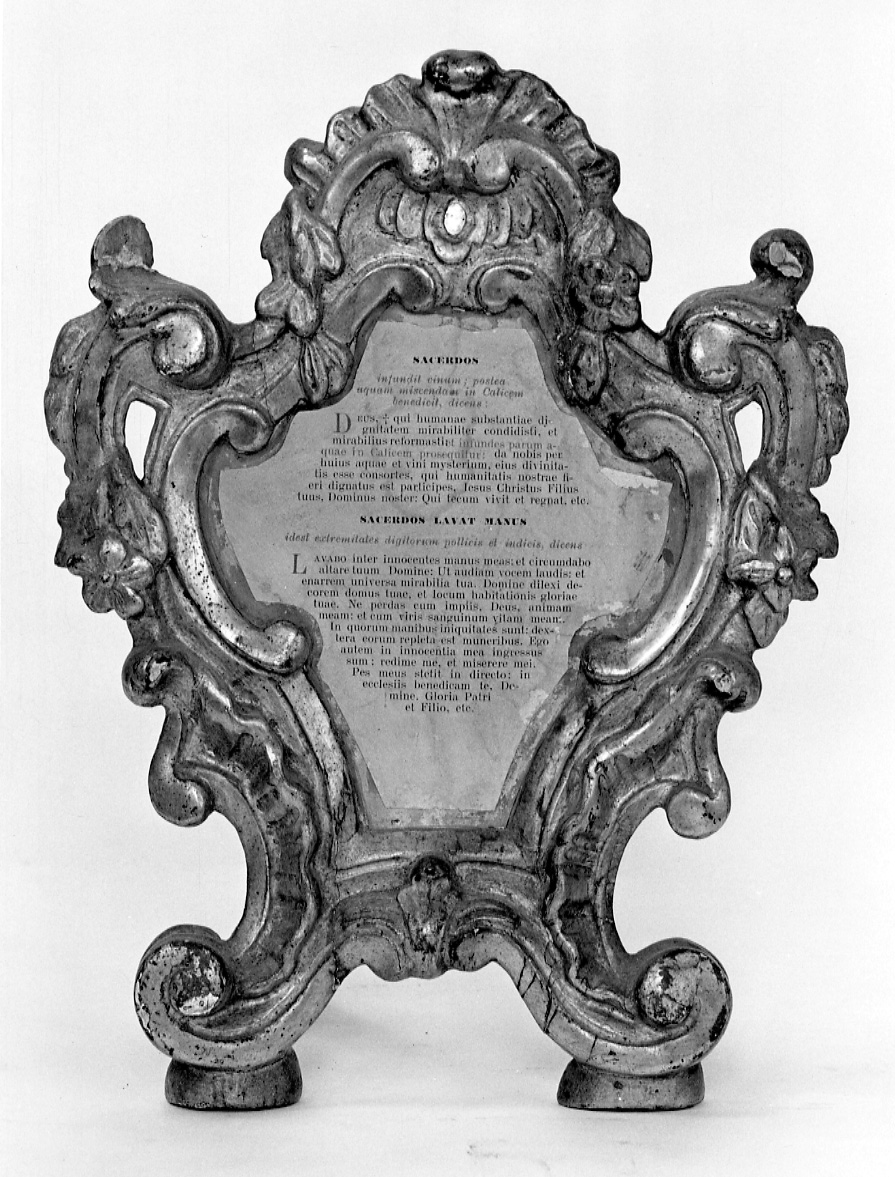 SACERDOS
infundit vinum; postea
aquam miscendam in Calicem
benedicit, dicens:
DEUS, ✝ qui humanae substantiae di-
gnitatem mirabiliter condidisti, et
mirabilius reformasti: et infundes parum a-
quae in Calicem prosequitur: da nobis per
huius aquae et vini mysterium, eius divinita-
tis esse consortes, qui humanitatis nostrae fi-
eri dignatus est particeps, Jesus Christus Filius
tuus, Dominus noster: Qui tecum vivit et regnat, etc.
SACERDOS LAVAT MANUS
idest extremitates digitorum pollicis et indicis, dicens
LAVABO inter innocentes manus meas: et circumdabo
altare tuum Domine: Ut audiam vocem laudis: et
enarrem universa mirabilia tua. Domine dilexi de-
corem domus tuae, et locum habitationis gloriae
tuae. Ne perdas cum impiis, Deus, animam
meam: et cum viris sanguinum vitam meam:
In quorum manibus iniquitates sunt: dex-
tera eorum repleta est muneribus. Ego
autem in innocentia mea ingressus
sum: redime me, et miserere mei.
Pes meus stetit in directo: in
ecclesiis benedicam te, Do-
mine. Gloria Patri
et Filio, etc.